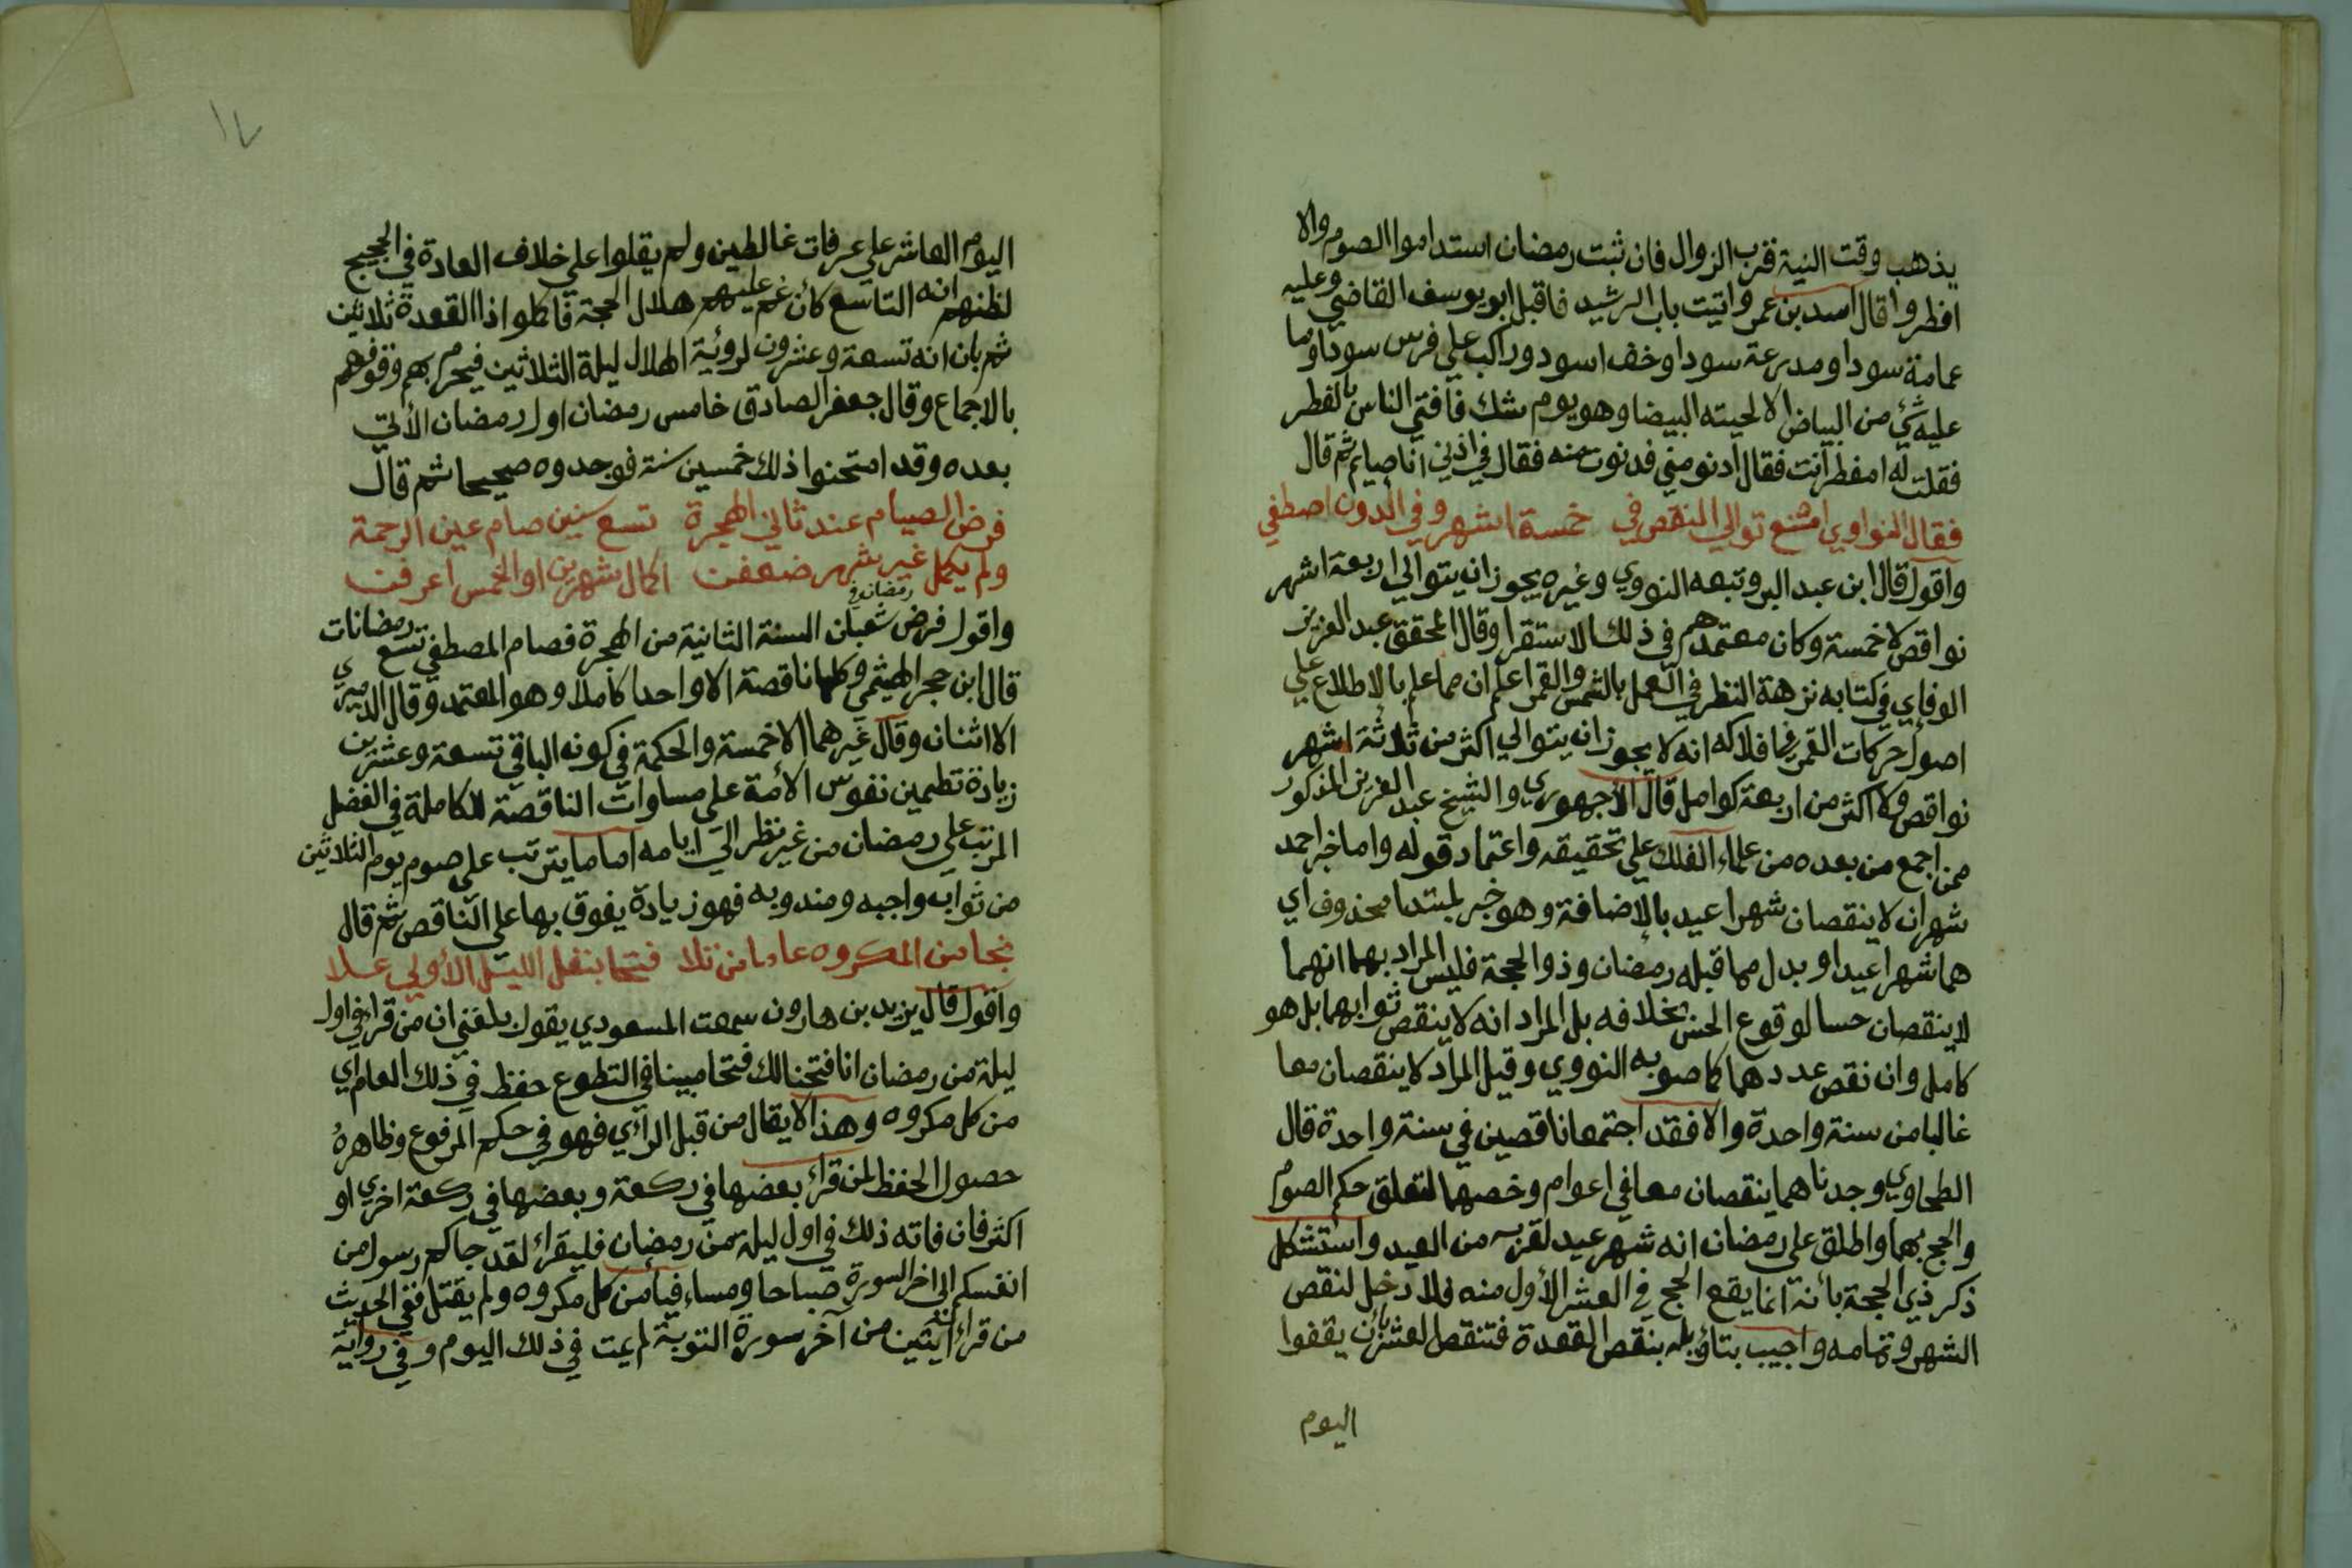 يذهب وقت النية قرب الزوال فان ثبت رمضان استداموا الصوم والا
افطروا قال اسد بن عمرو اتيت باب الرشيد فاقبل ابو يوسف القاضي وعليه
عمامة سودا ومدرعة سودا وخف اسود وراكب علي فرس سودا وما
عليه شئ من البياض الا لحيته البيضا وهو يوم شك فافتي الناس بالفطر
فقلت له امفطر انت فقال ادنو مني فدنوت منه فقال في اذني انا صايم ثم قال
فقال النواوي امتنع توالي النقص في خمسة اشهر وفي الدون اصطفي
واقول قال ابن عبد البر وتبعه النووي وغيره يجوز ان يتوالي اربعة اشهر
نواقص لا خمسة وكان معتمدهم في ذلك الاستقرا وقال المحقق عبد العزيز
الوفاي في كتابه نزهة النظر في العمل بالشمس والقمر اعلم ان مما علم بالاطلاع علي
اصول حركات القمر في افلاكه انه لا يجوز ان يتوالي اكثر من ثلاثة اشهر
نواقص ولا اكثر من اربعة كوامل قال الاجهوري والشيخ عبد العزيز المذكور
ممن اجمع من بعده من علماء الفلك علي تحقيقه واعتماد قوله واما خبر احمد
شهران لا ينقصان شهرا عيد بالاضافة وهو خبر لمبتدا محذوف اي
هما شهرا عيد او بدل مما قبله رمضان وذو الحجة فليس المراد بهما انهما
لا ينقصان حسا لوقوع الحس بخلافه بل المراد انه لا ينقص ثوابهما بل هو
كامل وان نقص عددهما كما صوبه النووي وقيل المراد لا ينقصان معا
غالبا من سنة واحدة والا فقد اجتمعا ناقصين في سنة واحدة قال
الطحاوي وجدناهما ينقصان معا في اعوام وخصهما لتعلق حكم الصوم
والحج بهما واطلق علي رمضان انه شهر عيد لقربه من العيد واستشكل
ذكر ذي الحجة بأنه انما يقع الحج في العشر الأول منه فلا دخل لنقص
الشهر وتمامه واجيب بتاؤيله بنقص القعدة فتنقص العشر بأن يقفوا
اليوم
اليوم العاشر علي عرفات غالطين ولم يقلوا علي خلاف العادة في الحجيج
لظنهم انه التاسع كأن غم عليهم هلال الحجة فاكملوا ذا القعدة ثلاثين
ثم بان انه تسعة وعشرون لرؤية الهلال ليلة الثلاثين فيحرم بهم وقوفهم
بالاجماع وقال جعفر الصادق خامس رمضان اول رمضان الأتي
بعده وقد امتحنوا ذلك خمسين سنة فوجدوه صحيحا ثم قال
فرض الصيام عند ثاني الهجرة تسع سنين صام عين الرحمة
ولم يكمل غير شهر ضعفت اكمال شهرين او الخمس اعرفت
واقول فرض رمضان في شعبان السنة الثانية من الهجرة فصام المصطفي تسع رمضانات
قال ابن حجر الهيثمي وكلها ناقصة الا واحدا كاملا وهو المعتمد وقال الدميري
الا اثنان وقال غيرهما الا خمسة والحكمة في كونه الباقي تسعة وعشرين
زيادة تطمين نفوس الأمة علي مساوات الناقصة للكاملة في الفضل
المرتب علي رمضان من غير نظر الي ايامه اما ما يترتب علي صوم يوم الثلاثين
من ثواب واجبه ومندوبه فهو زيادة يفوق بها علي الناقص ثم قال
نجا من المكروه عاما من تلا فتحا بنفل الليل الأولي علا
واقول قال يزيد بن هارون سمعت المسعودي يقول بلغني ان من قرا في اول
ليلة من رمضان انا فتحنا لك فتحا مبينا في التطوع حفظ في ذلك العام اي
من كل مكروه وهذا لا يقال من قبل الرأي فهو في حكم المرفوع وظاهره
حصول الحفظ لمن قراء بعضها في ركعة وبعضها في ركعة اخري او
اكثر فان فاته ذلك في اول ليلة من رمضان فليقراء لقد جاكم رسول من
انفسكم الي اخر السورة صباحا ومساء فيأمن كل مكروه ولم يقتل ففي الحديث
من قراء ايتين من آخر سورة التوبة لم يمت في ذلك اليوم وفي رواية